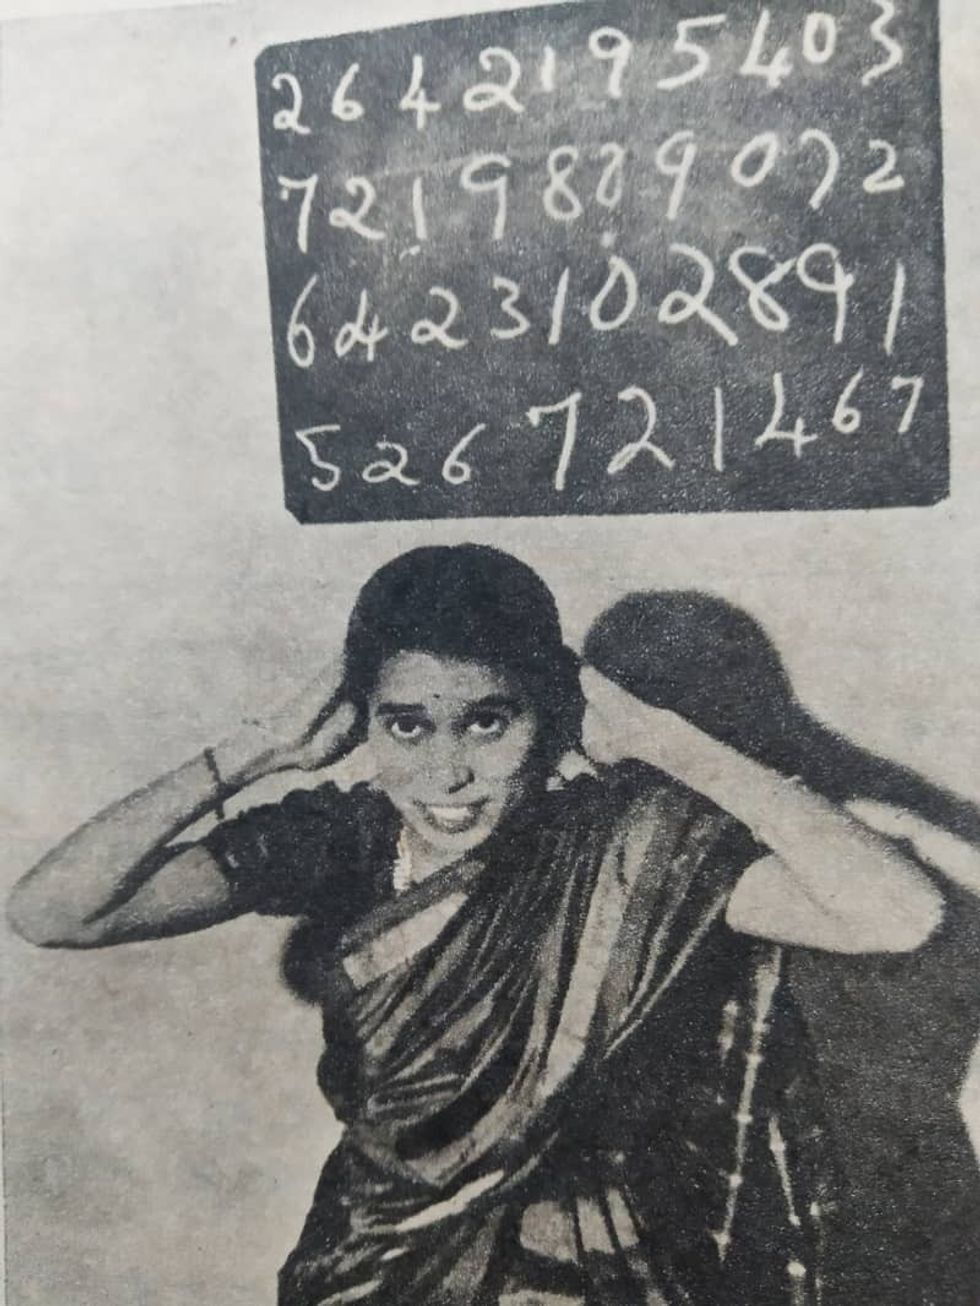 2642195403
72198?9072
6423102891
526721467